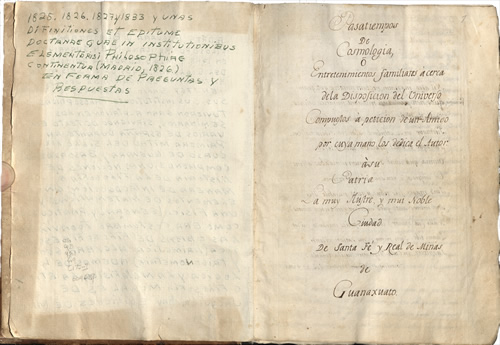 1825, 1826, 1827 y 1833 y UNAS
DIFINITIONES ET EPITOME
DOCTRINAE QUAE IN INSTITUTIONIBUS
ELEMENTARSI PHILOSOPHIAE
CONTINENTUR (MADRID, 1826)
EN FORMA DE PREGUNTAS Y
RESPUESTAS
Pasatiempos
De
Cosmologia,
ò
Entretenimientos familiares acerca
de la Disposicion del Universo
Compuestos a peticion de un Amigo
por cuya mano los dedica el Autor
à su
Patria
La muy Ilustre, y mui Noble
Ciudad
De Santa Fé y Real de Minas
de
Guanaxuato.